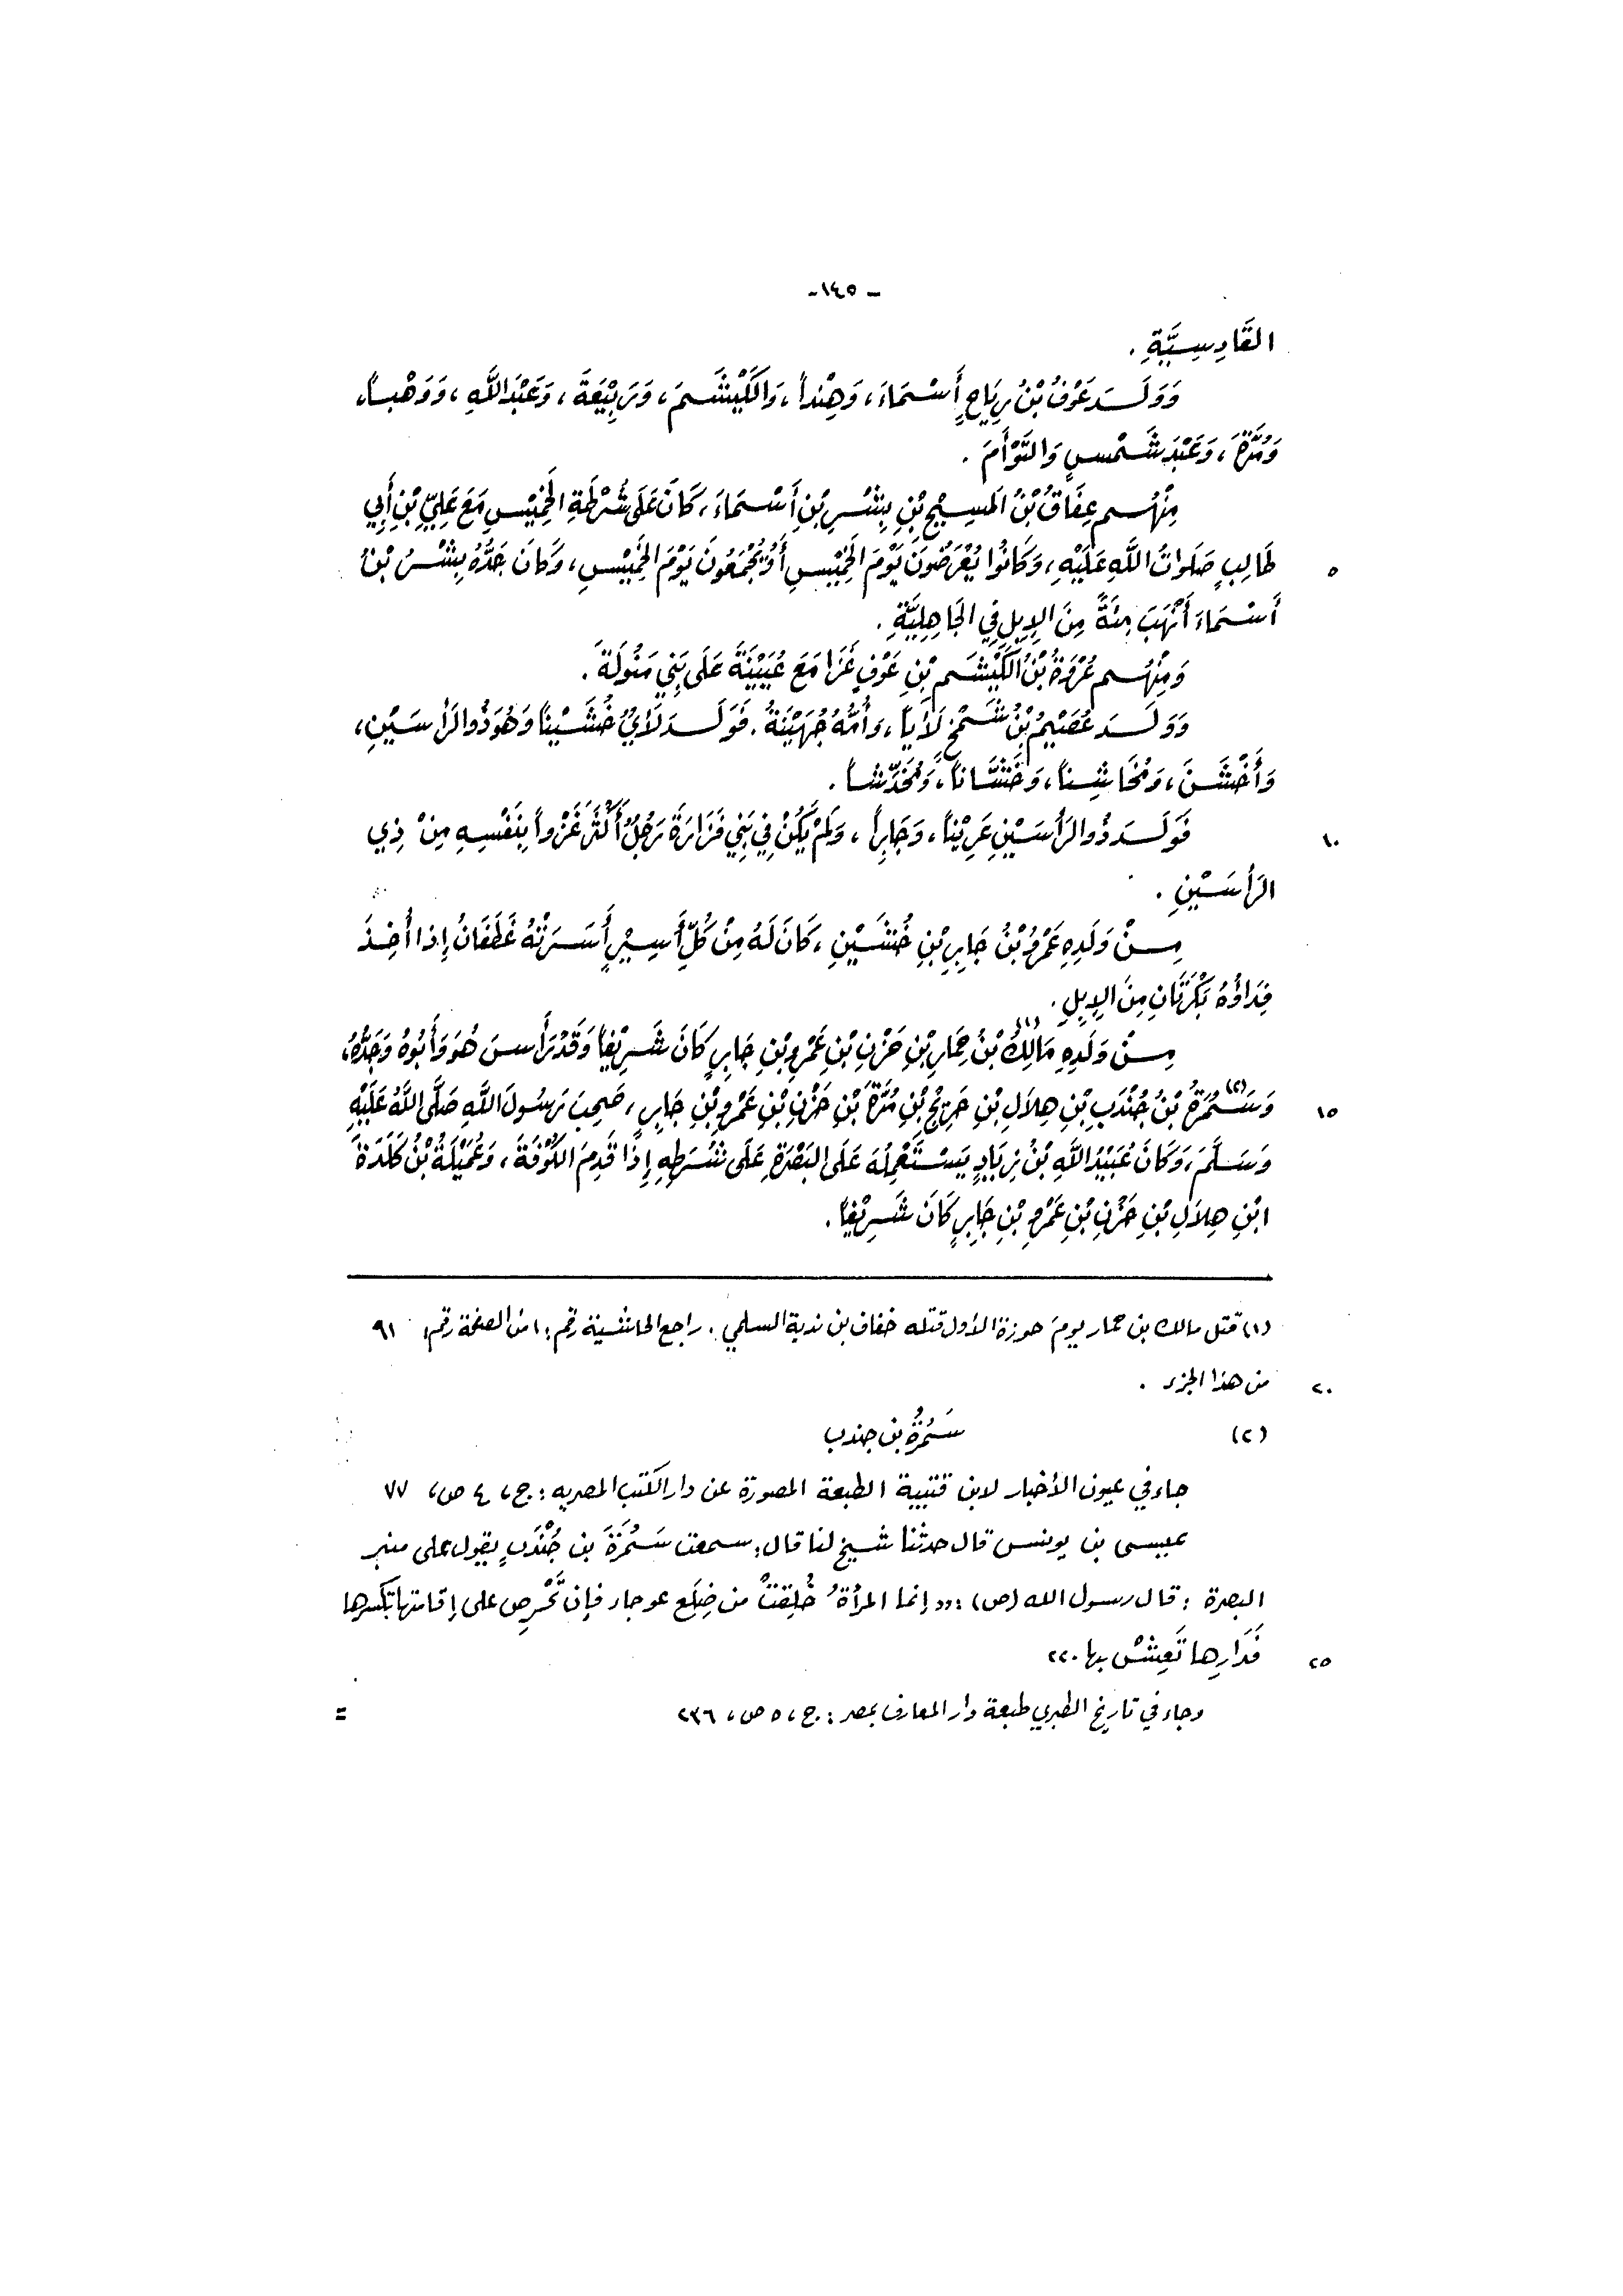 - ١٤٥ -
القَادِسِيَّةِ .
وَوَلَـدَ عَوْفُ بْنُ رِيَاحٍ أَسْمَاءَ، وَهِنْداً، وَالكَيْشَمَ، وَرَبِيْعَةَ، وَعَبْدَاللَّهِ، وَوَهْباً،
وَمُرَّةَ، وَعَبْدَ شَمْسٍ وَالتَّوْأَمَ .
مِنْهُم عِفَاقُ بْنُ المَسِيْحِ بْنِ بِشْرِ بْنِ أَسْمَاءَ، كَانَ عَلَى شُرْطَةِ الخَمِيْسِ مَعَ عَلِيِّ بْنِ أَبِي
طَالِبٍ صَلَوَاتُ اللَّهِ عَلَيْهِ، وَكَانُوا يُعْرَضُونَ يَوْمَ الخَمِيْسِ أَوْ يُجْمَعُونَ يَوْمَ الخَمِيْسِ، وَكَانَ جَدُّهُ بِشْرُ بْنُ ٥
أَسْمَاءَ أَنْهَبَ مِئَةً مِنَ الإِبِلِ فِي الجَاهِلِيَّةِ .
وَمِنْهُم عُرْوَةُ بْنُ الكَيْشَمِ بْنِ عَوْفٍ غَزَا مَعَ عُيَيْنَةَ عَلَى بَنِي مَنُولَةَ .
وَوَلَـدَ عُصَيْمُ بْنُ شَمْخٍ لَأْياً، وأُمُّهُ جُهَيْنَةُ . فَوَلَـدَ لَأْيٌ خُشَيْناً وَهُوَ ذُو الرَأْسَيْنِ،
وَأَخْشَنَ، وَمُخَاشِناً، وَخَشَّاناً، وَمُخَدِّشاً .
فَوَلَـدَ ذُو الرَأْسَيْنِ عَرِيْناً، وَجَابِراً، وَلَمْ يَكُنْ فِي بَنِي فَزَارَةَ رَجُلٌ أَكْثَرَ غَزْواً بِنَفْسِهِ مِنْ ذِي ١٠
الرَأْسَيْنِ .
مِـنْ وَلَدِهِ عَمْرُو بْنُ جَابِرِ بْنِ خُشَيْنِ، كَانَ لَهُ مِنْ كُلِّ أَسِيْرٍ أَسَرَتْهُ غَطَفَانُ إِذَا أُخِذَ
فِدَاؤُهُ بَكْرَتَانِ مِنَ الإِبِلِ .
مِـنْ وَلَدِهِ مَالِكُ(١) بْنُ حِمَارِ بْنِ حَزْنِ بْنِ عَمْرِو بْنِ جَابِرٍ كَانَ شَرِيْفاً وَقَدْ رَأَسَ هُوَ وَأَبُوهُ وَجَدُّهُ،
وَسَمُرَةُ(٢) بْنُ جُنْدَبِ بْنِ هِلَالِ بْنِ حَرِيْجِ بْنِ مُرَّةَ بْنِ حَزْنِ بْنِ عَمْرِو بْنِ جَابِرٍ، صَحِبَ رَسُولَ اللَّهِ صَلَّى اللَّهُ عَلَيْهِ ١٥
وَسَلَّمَ، وَكَانَ عُبَيْدُ اللَّهِ بْنُ زِيَادٍ يَسْتَعْمِلُهُ عَلَى البَصْرَةِ عَلَى شُرَطِهِ إِذَا قَدِمَ الكُوْفَةَ، وَعُمَيْلَةُ بْنُ كَلَدَةَ
ابْنِ هِلَالِ بْنِ حَزْنِ بْنِ عَمْرِو بْنِ جَابِرٍ كَانَ شَرِيْفاً .
(١) قتل مالك بن حمار يوم حوزة الأول قتله خفاف بن ندبة السلمي . راجع الحاشية رقم: ١ من الصفحة رقم: ٩١
من هذا الجزء . ٢٠
(٢) سَمُرَةُ بن جندب
جاء في عيون الأخبار لابن قتيبة الطبعة المصورة عن دار الكتب المصريه : ج، ٤ ص، ٧٧
عيسى بن يونس قال حدثنا شيخ لنا قال: سمعت سَمُرَةَ بن جُنْدَبٍ يقول على منبر
البصرة : قال رسول الله (ص) : «إنما المرأةُ خُلِقَتْ من ضِلَع عوجاء فإن تَحْرِص على إقامتها تكسرها
فَدَارِها تَعِشْ بها .» ٢٥
وجاء في تاريخ الطبري طبعة دار المعارف بمصر : ج، ٥ ص، ٢٣٦ =